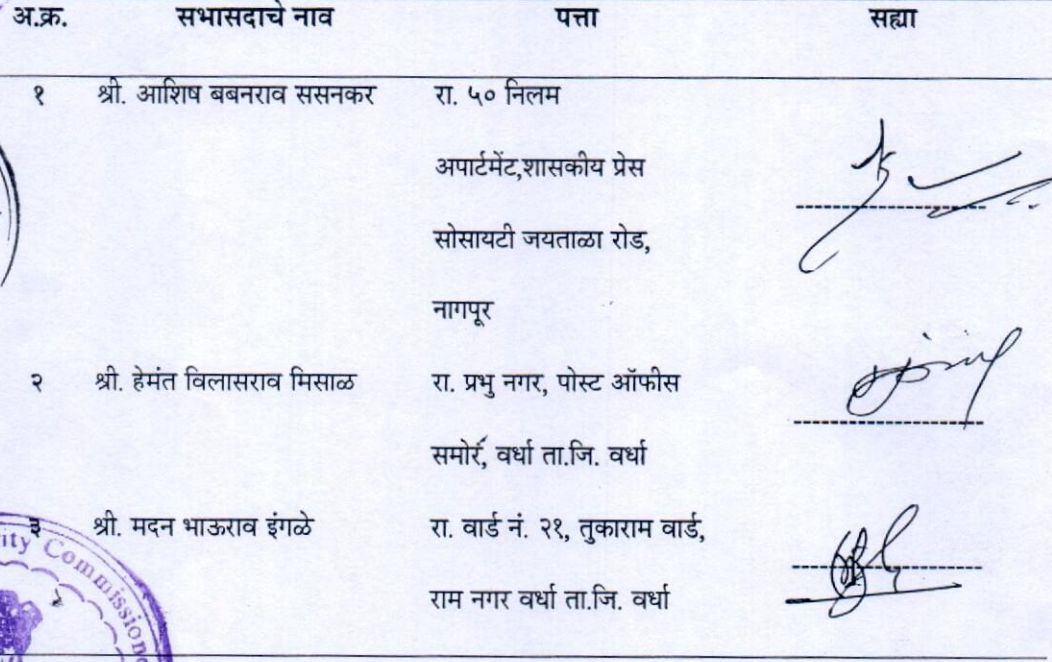 अ.क्र. सभासदाचे नाव पत्ता सह्या
१ श्री. आशिष बबनराव ससनकर रा. ५० निलम
अपार्टमेंट,शासकीय प्रेस
सोसायटी जयताळा रोड,
नागपूर
२ श्री. हेमंत विलासराव मिसाळ रा. प्रभु नगर, पोस्ट ऑफीस
समोर, वर्धा ता.जि. वर्धा
३ श्री. मदन भाऊराव इंगळे रा. वार्ड नं. २१, तुकाराम वार्ड,
राम नगर वर्धा ता.जि. वर्धा
ity Commissione